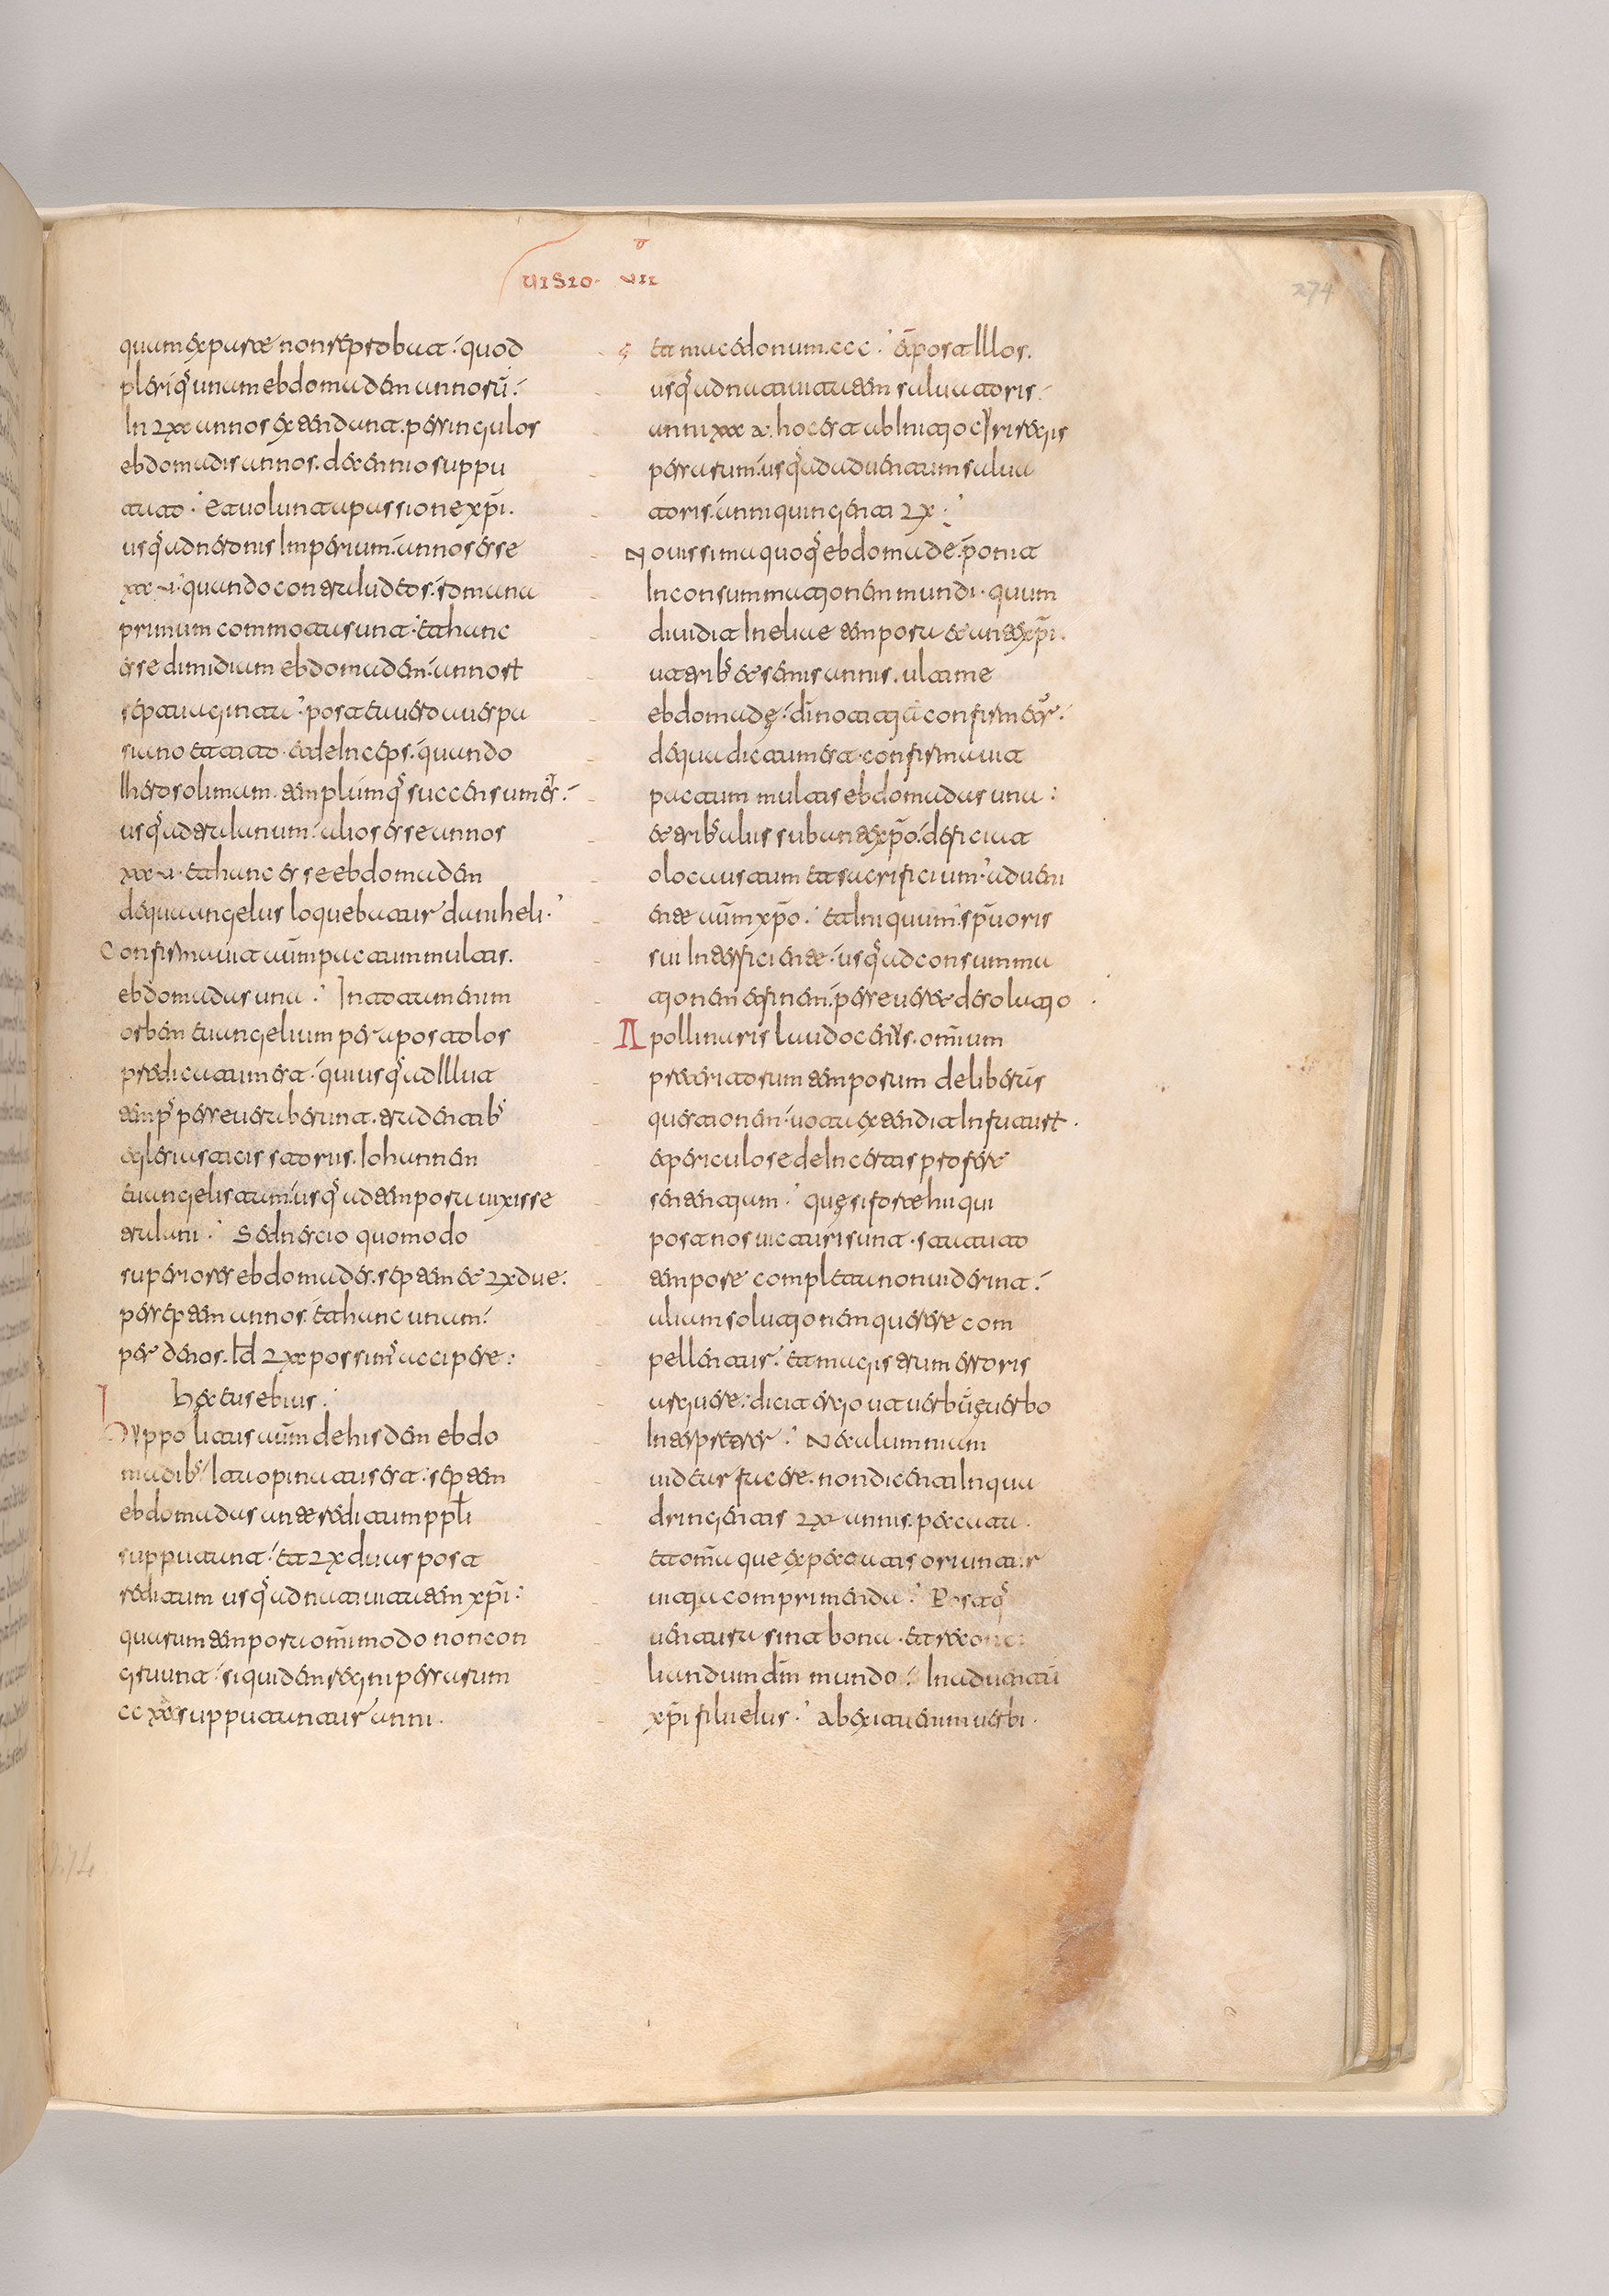 VISIO VII
274
quam ex parte non reprobat quod
pleriq' unam ebdomadem annorū
In Lxx annos extendunt. per singulos
ebdomadis annos. decennio suppu
tato. Et volunt a passione xp̄i.
usq' ad neronis Imperium. annos esse
xxxv. quando contra iudeos. romana
primum commota sunt. et hanc
esse dimidium ebdomadem. annorum
septuaginta. post a vero a vespa
siano et tito. et deInceps. quando
Iherosolimam. templumq' succensum est.
usq' ad traianum. alios esse annos
xxxv. et hanc esse ebdomadem
de qua angelus loquebatur daniheli.
Confirmavit autem pactum multis.
ebdomadas una. In totum enim
orbem evangelium per apostolos
predicatum est. qui usq' ad Illut
temps perseveraberunt. tradentibs
eglesiasticis storiis. Iohannem
evangelistam. usq' ad tempora vixisse
traiani. Sed nescio quomodo
superiores ebdomades. septem et Lxdue.
per septem annos. et hanc unam.
per denos. Id Lxx possims accipere:
Hec eusebius.
Yppolitus autem de hisdem ebdo
madibs. Ita opinatus est. septem
ebdomadas ante reditum ppl̄i
supputant. et Lxduas post
reditum usq' ad nativitatem xp̄i.
quarum tempora omnimodo non con
gruunt. siquidem regni persarum
ccxxx supputantur anni.
et macedonum.ccc. et post Illos.
usq' ad nativitatem salvatoris.
anni xxx a. hoc est ab Initio cyri regis
persarum. usq' ad adventum salva
toris. anni quingenti Lx.
Novissima quoq' ebdomade. ponit
Inconsummationem mundi. quam
dividit In elie tempora et antexp̄i.
ut tribs et semis annis. ultime
ebdomade. dī notitia confirmetur.
de qua dictum est. confirmavit
pactum multis ebdomadas una:
et tribs aliis sub antexp̄o. deficiat
olocaustum et sacrificium. adveni
ente autem xp̄o. et Iniquum. spū oris
sui Interficiente. usq' ad consumma
tionem et finem. perseveret desolatio
Apollinaris laudocenus. omnium
preteritorum temporum deliberans
questionem. vota extendit In futurum.
et periculose de Incertis profert
sententiam. que si forte hii qui
post nos victuri sunt. statuto
tempore completa non viderint.
aliam solutionem querere com
pellentur. et magistrum erroris
arguere. dicit ergo ut verbum e verbo
Interpreter. Ne calumniam
videar facere. non dicenti In qua
dringentis Lxx annis. peccata.
et omnia que ex peccatis oriuntur
vitia comprimenda. Postq'
ventura sint bona. et recon
liandum dm̄ mundo. In adventū
xp̄i filii eius. ab exitu enim verbi.